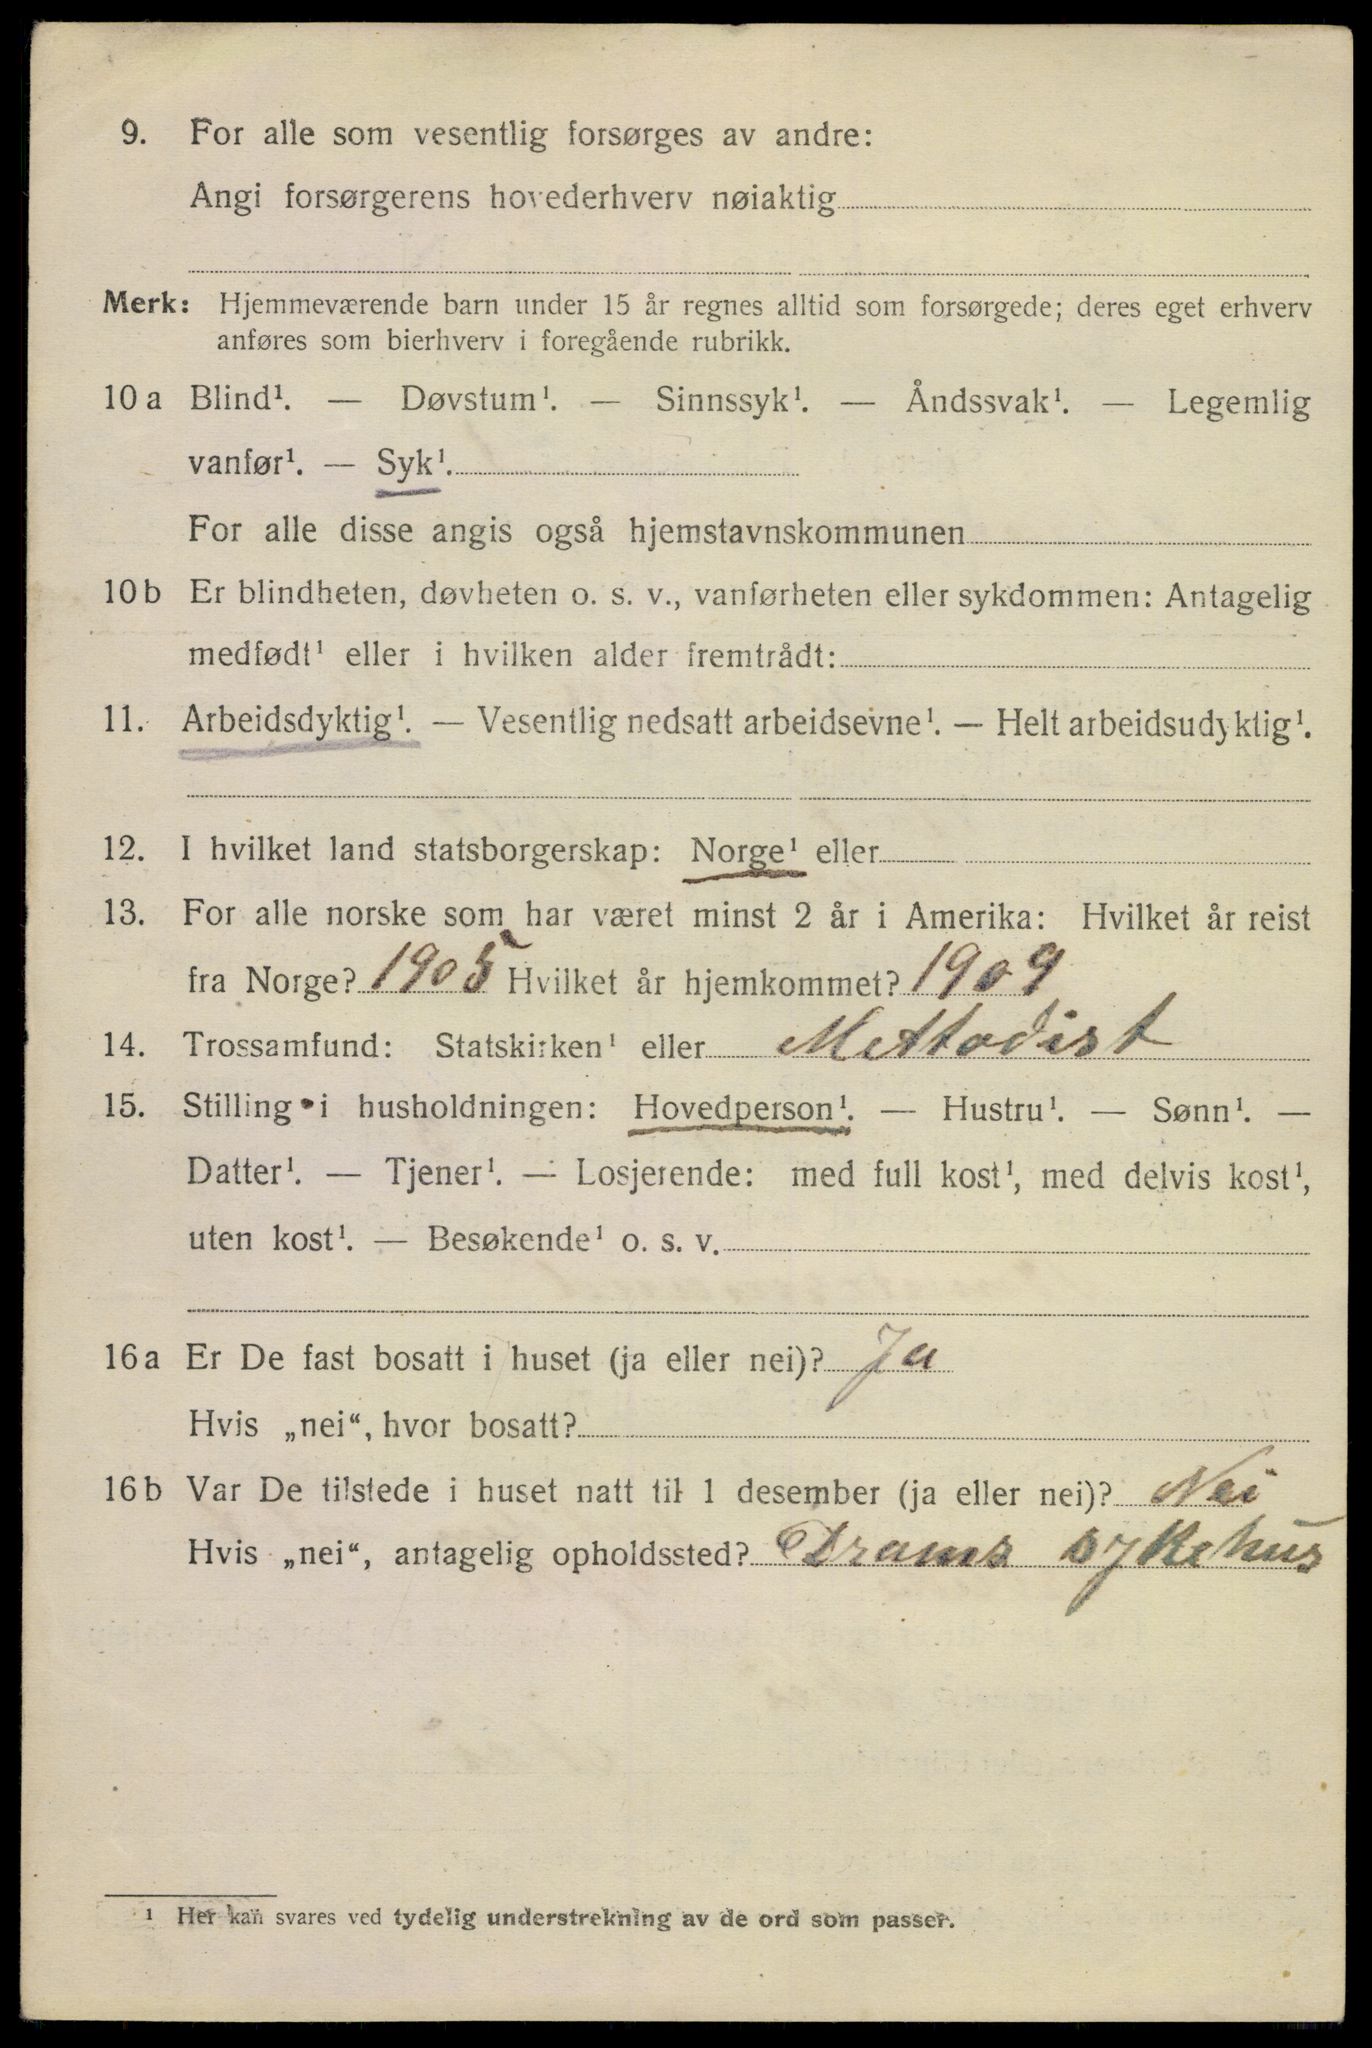 9. For alle som vesentlig forsørges av andre:
Angi forsørgerens hovederhverv nøiaktig
Merk: Hjemmeværende barn under 15 år regnes alltid som forsørgede; deres eget erhverv
anføres som bierhverv i foregående rubrikk.
10 a Blind¹. — Døvstum¹. — Sinnssyk¹. — Åndssvak¹. — Legemlig
vanfør¹. — Syk¹.
For alle disse angis også hjemstavnskommunen
10 b Er blindheten, døvheten o. s. v., vanførheten eller sykdommen: Antagelig
medfødt¹ eller i hvilken alder fremtrådt:
11. Arbeidsdyktig¹. — Vesentlig nedsatt arbeidsevne¹. — Helt arbeidsudyktig¹.
12. I hvilket land statsborgerskap: Norge¹ eller
13. For alle norske som har været minst 2 år i Amerika: Hvilket år reist
fra Norge? 1905 Hvilket år hjemkommet? 1909
14. Trossamfund: Statskirken¹ eller Mettodist
15. Stilling i husholdningen: Hovedperson¹. — Hustru¹. — Sønn¹. —
Datter¹. — Tjener¹. — Losjerende: med full kost¹, med delvis kost¹,
uten kost¹. — Besøkende¹ o. s. v.
16 a Er De fast bosatt i huset (ja eller nei)? Ja
Hvis „nei“, hvor bosatt?
16 b Var De tilstede i huset natt til 1 desember (ja eller nei)? Nei
Hvis „nei“, antagelig opholdssted? Drams sykehus
¹ Her kan svares ved tydelig understrekning av de ord som passer.